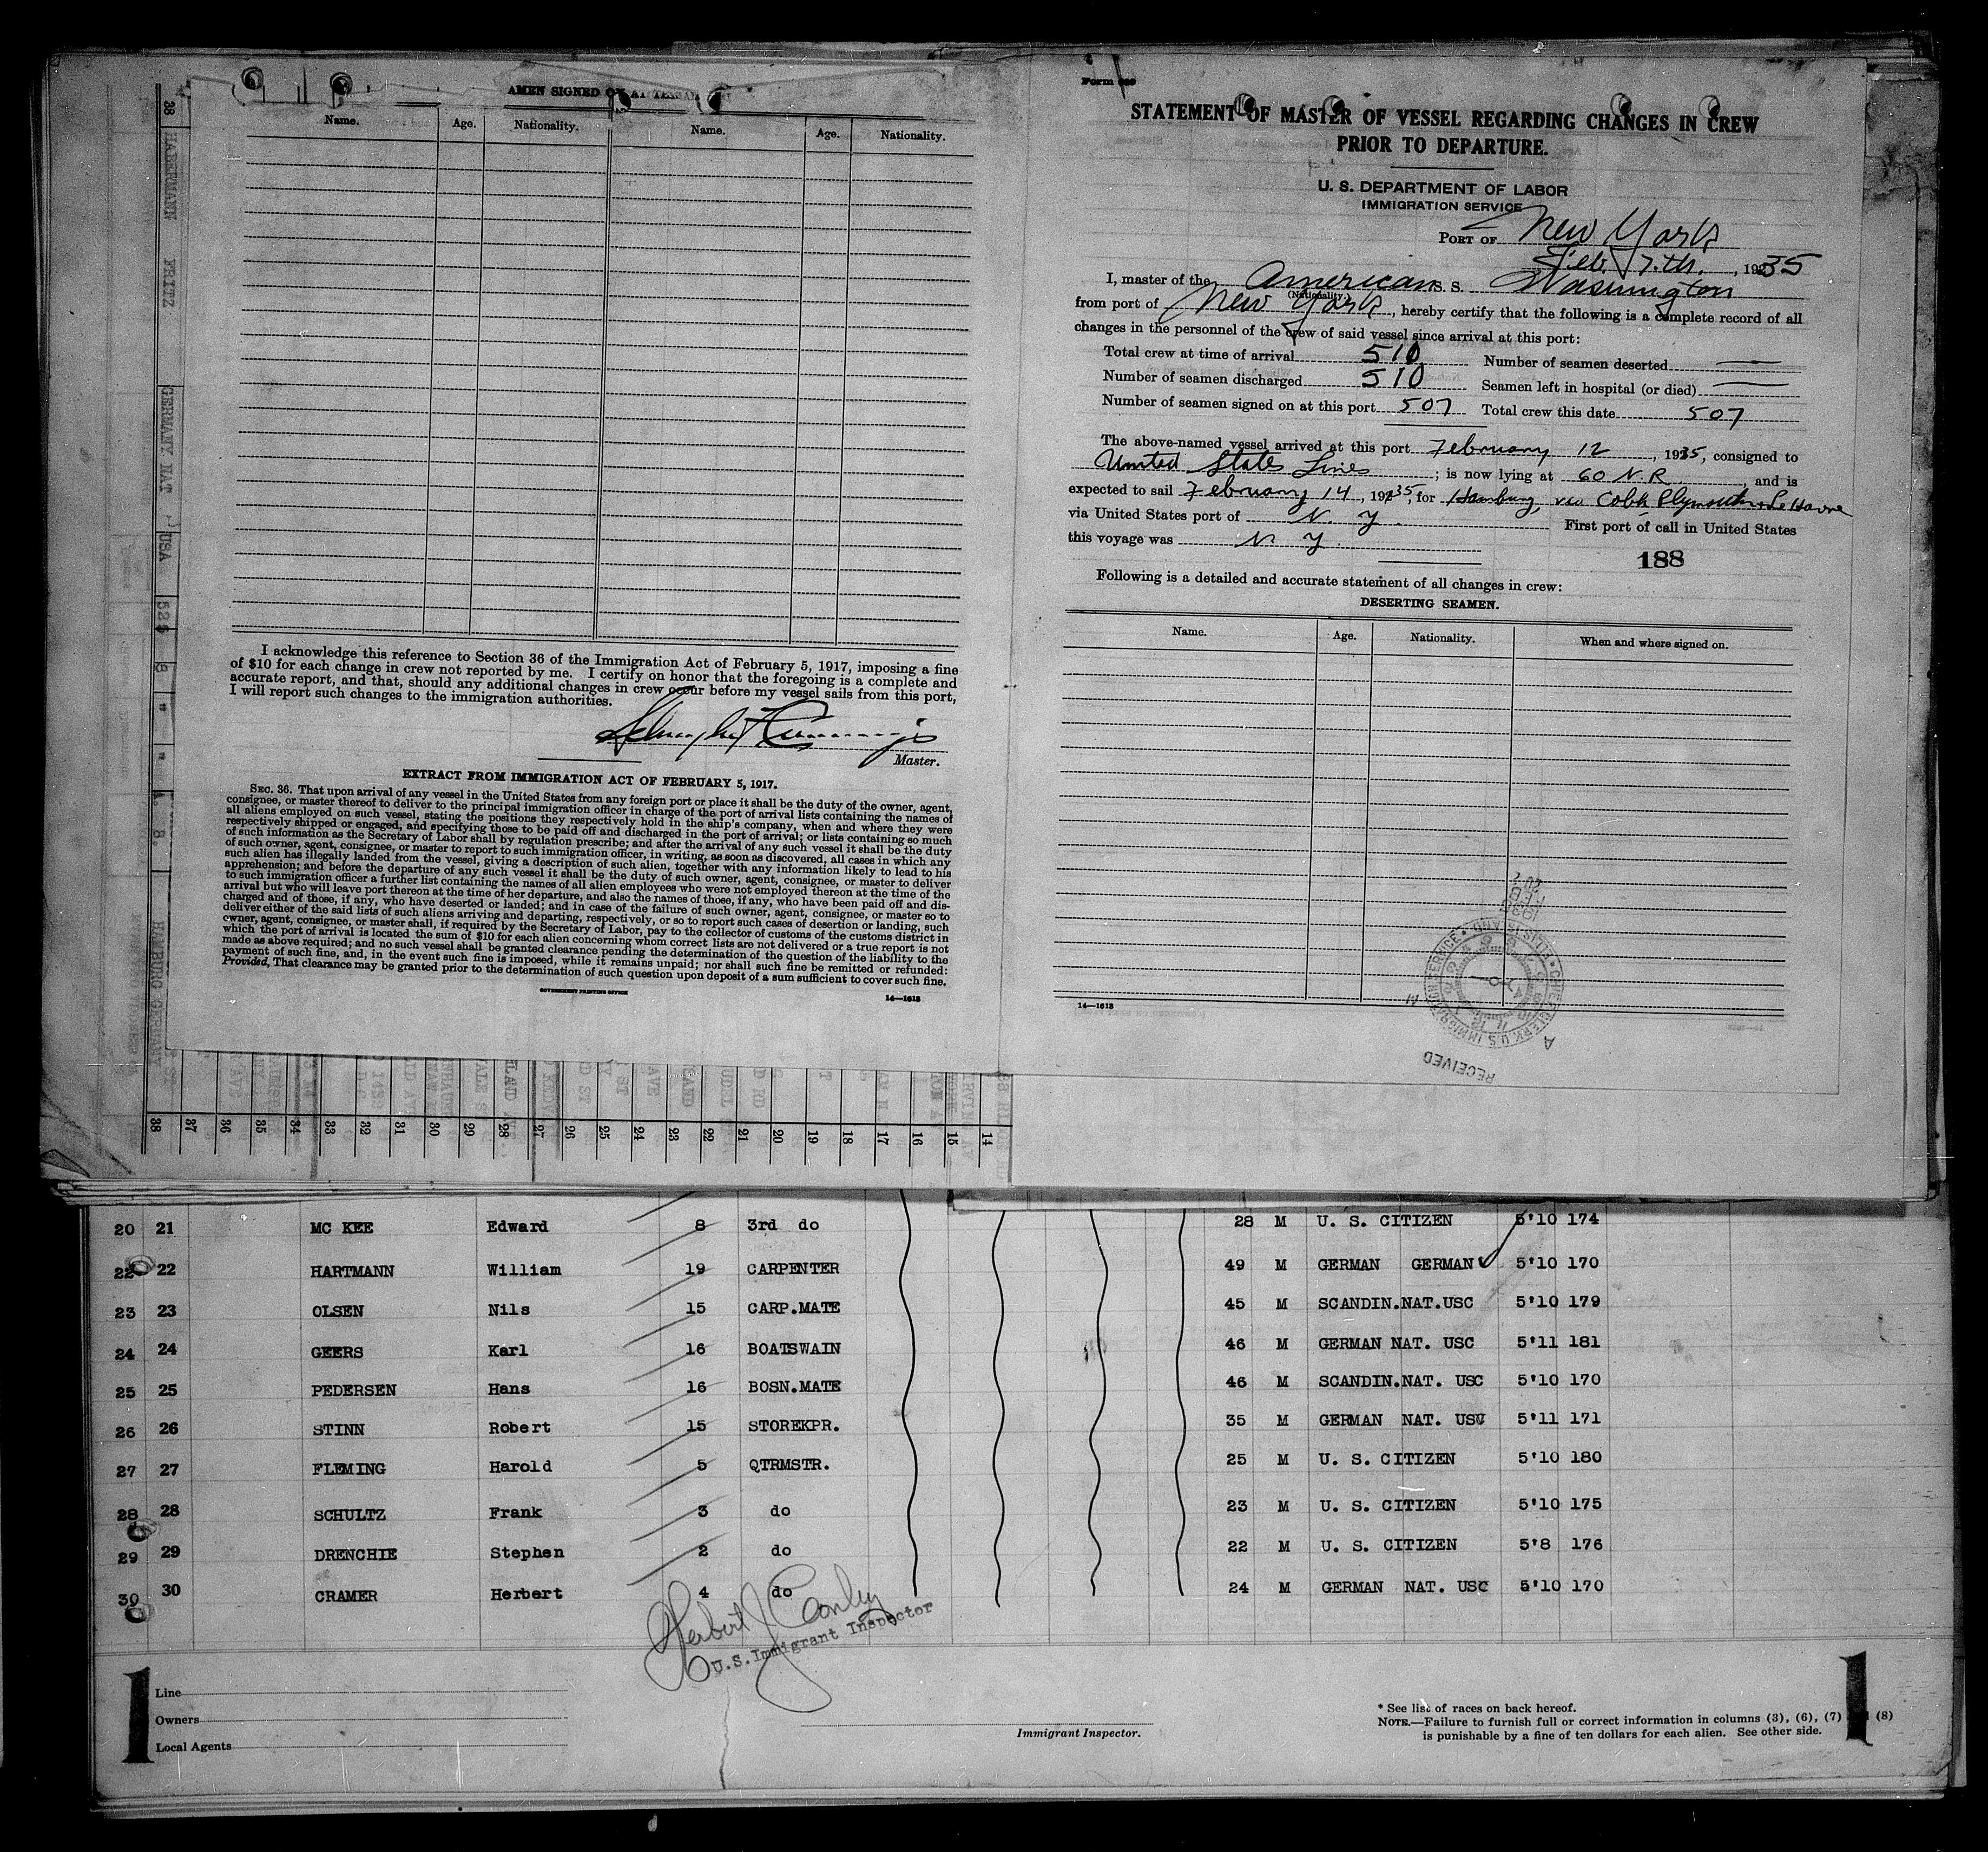 Name. Age. Nationality. Name. Age. Nationality.
I acknowledge this reference to Section 36 of the Immigration Act of February 5, 1917, imposing a fine
of $10 for each change in crew not reported by me. I certify on honor that the foregoing is a complete and
accurate report, and that, should any additional changes in crew occur before my vessel sails from this port,
I will report such changes to the immigration authorities.
Master.
EXTRACT FROM IMMIGRATION ACT OF FEBRUARY 5, 1917.
SEC. 36. That upon arrival of any vessel in the United States from any foreign port or place it shall be the duty of the owner, agent,
consignee, or master thereof to deliver to the principal immigration officer in charge of the port of arrival lists containing the names of
all aliens employed on such vessel, stating the positions they respectively hold in the ship's company, when and where they were
respectively shipped or engaged, and specifying those to be paid off and discharged in the port of arrival; or lists containing so much
of such information as the Secretary of Labor shall by regulation prescribe; and after the arrival of any such vessel it shall be the duty
of such owner, agent, consignee, or master to report to such immigration officer, in writing, as soon as discovered, all cases in which any
such alien has illegally landed from the vessel, giving a description of such alien, together with any information likely to lead to his
apprehension; and before the departure of any such vessel it shall be the duty of such owner, agent, consignee, or master to deliver
to such immigration officer a further list containing the names of all alien employees who were not employed thereon at the time of the
arrival but who will leave port thereon at the time of her departure, and also the names of those, if any, who have been paid off and dis-
charged and of those, if any, who have deserted or landed; and in case of the failure of such owner, agent, consignee, or master so to
deliver either of the said lists of such aliens arriving and departing, respectively, or so to report such cases of desertion or landing, such
owner, agent, consignee, or master shall, if required by the Secretary of Labor, pay to the collector of customs of the customs district in
which the port of arrival is located the sum of $10 for each alien concerning whom correct lists are not delivered or a true report is not
made as above required; and no such vessel shall be granted clearance pending the determination of the question of the liability to the
payment of such fine, and, in the event such fine is imposed, while it remains unpaid; nor shall such fine be remitted or refunded:
Provided, That clearance may be granted prior to the determination of such question upon deposit of a sum sufficient to cover such fine.
GOVERNMENT PRINTING OFFICE 14—1613
38 HABERMANN FRITZ GERMANY NAT USA
HAMBURG GERMANY
38 37 36 35 34 33 32 31 30 29 28 27 26 25 24 23 22 21 20 19 18 17 16 15 14
Form
STATEMENT OF MASTER OF VESSEL REGARDING CHANGES IN CREW
PRIOR TO DEPARTURE.
U. S. DEPARTMENT OF LABOR
IMMIGRATION SERVICE
PORT OF New York
Feb. 7.th. , 1935
I, master of the American S. S. Washington
(Nationality)
from port of New York , hereby certify that the following is a complete record of all
changes in the personnel of the crew of said vessel since arrival at this port:
Total crew at time of arrival 510 Number of seamen deserted —
Number of seamen discharged 510 Seamen left in hospital (or died) —
Number of seamen signed on at this port 507 Total crew this date 507
The above-named vessel arrived at this port February 12 , 1935, consigned to
United States Lines ; is now lying at 60 N.R , and is
expected to sail February 14 , 1935, for Hamburg, via Cobh Plymouth + Le Havre
via United States port of N. Y. First port of call in United States
this voyage was N. Y.
188
Following is a detailed and accurate statement of all changes in crew:
DESERTING SEAMEN.
Name. Age. Nationality. When and where signed on.
14—1613
1935 FEB
CHIEF CLERK U.S. IMMIGRATION SERVICE
RECEIVED
20 21 MC KEE Edward 8 3rd do 28 M U. S. CITIZEN 5'10 174
22 22 HARTMANN William 19 CARPENTER 49 M GERMAN GERMAN 5'10 170
23 23 OLSEN Nils 15 CARP.MATE 45 M SCANDIN.NAT.USC 5'10 179
24 24 GEERS Karl 16 BOATSWAIN 46 M GERMAN NAT. USC 5'11 181
25 25 PEDERSEN Hans 16 BOSN.MATE 46 M SCANDIN.NAT. USC 5'10 170
26 26 STINN Robert 15 STOREKPR. 35 M GERMAN NAT. USC 5'11 171
27 27 FLEMING Harold 5 QTRMSTR. 25 M U. S. CITIZEN 5'10 180
28 28 SCHULTZ Frank 3 do 23 M U. S. CITIZEN 5'10 175
29 29 DRENCHIE Stephen 2 do 22 M U. S. CITIZEN 5'8 176
30 30 CRAMER Herbert 4 do 24 M GERMAN NAT. USC 5'10 170
Herbert J Conley
U.S. Immigrant Inspector
1 1
Line
Owners
Local Agents
Immigrant Inspector.
* See list of races on back hereof.
NOTE.—Failure to furnish full or correct information in columns (3), (6), (7) (8)
is punishable by a fine of ten dollars for each alien. See other side.